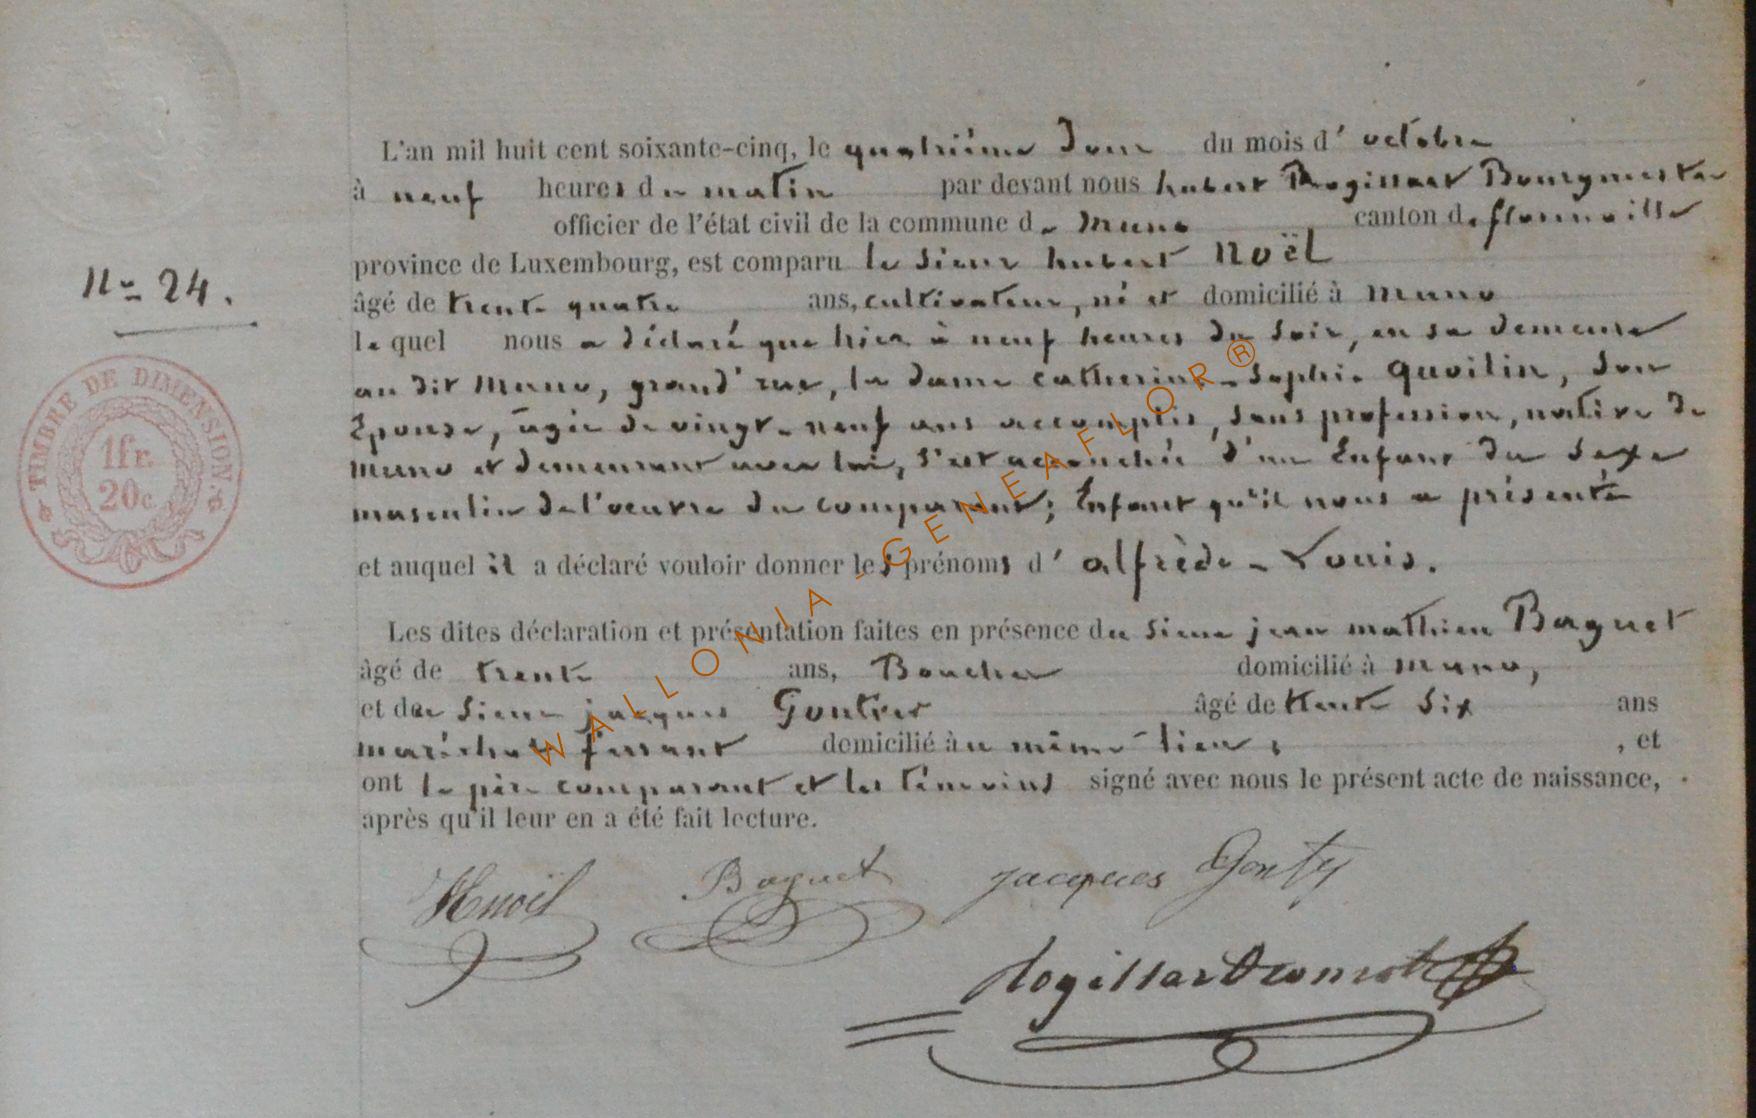 L'an mil huit cent soixante-cinq, le quatrième Jour du mois d' octobre
à neuf heures du matin par devant nous hubert Rogissart Bourgmestre
officier de l'état civil de la commune de Muno canton de florenville
province de Luxembourg, est comparu le sieur hubert Noël
N° 24.
âgé de trente quatre ans, cultivateur, né et domicilié à Muno
le quel nous a déclaré que hier à neuf heures du soir, en sa demeure
au dit Muno, grand'rue, la dame catherine-Sophie Gavilin, son
Epouse, âgée de vingt-neuf ans accomplis, sans profession, native de
Muno et demeurant avec lui, s'est accouchée d'un Enfant du sexe
masculin de l'oeuvre du comparant; Enfant qu'il nous a présenté
et auquel il a déclaré vouloir donner les prénoms d' alfrède-Louis.
Les dites déclaration et présentation faites en présence du sieur jean mathieu Baguet
âgé de trente ans, Boucher domicilié à Muno,
et du sieur jacques Gontier âgé de trente six ans
maréchal ferrant domicilié àu même lieu, , et
ont le père comparant et les témoins signé avec nous le présent acte de naissance,
après qu'il leur en a été fait lecture.
TIMBRE DE DIMENSION.
1fr.
20c
HNoël Baguet jacques Gonty
WALLONIA-GENEAFLOR®